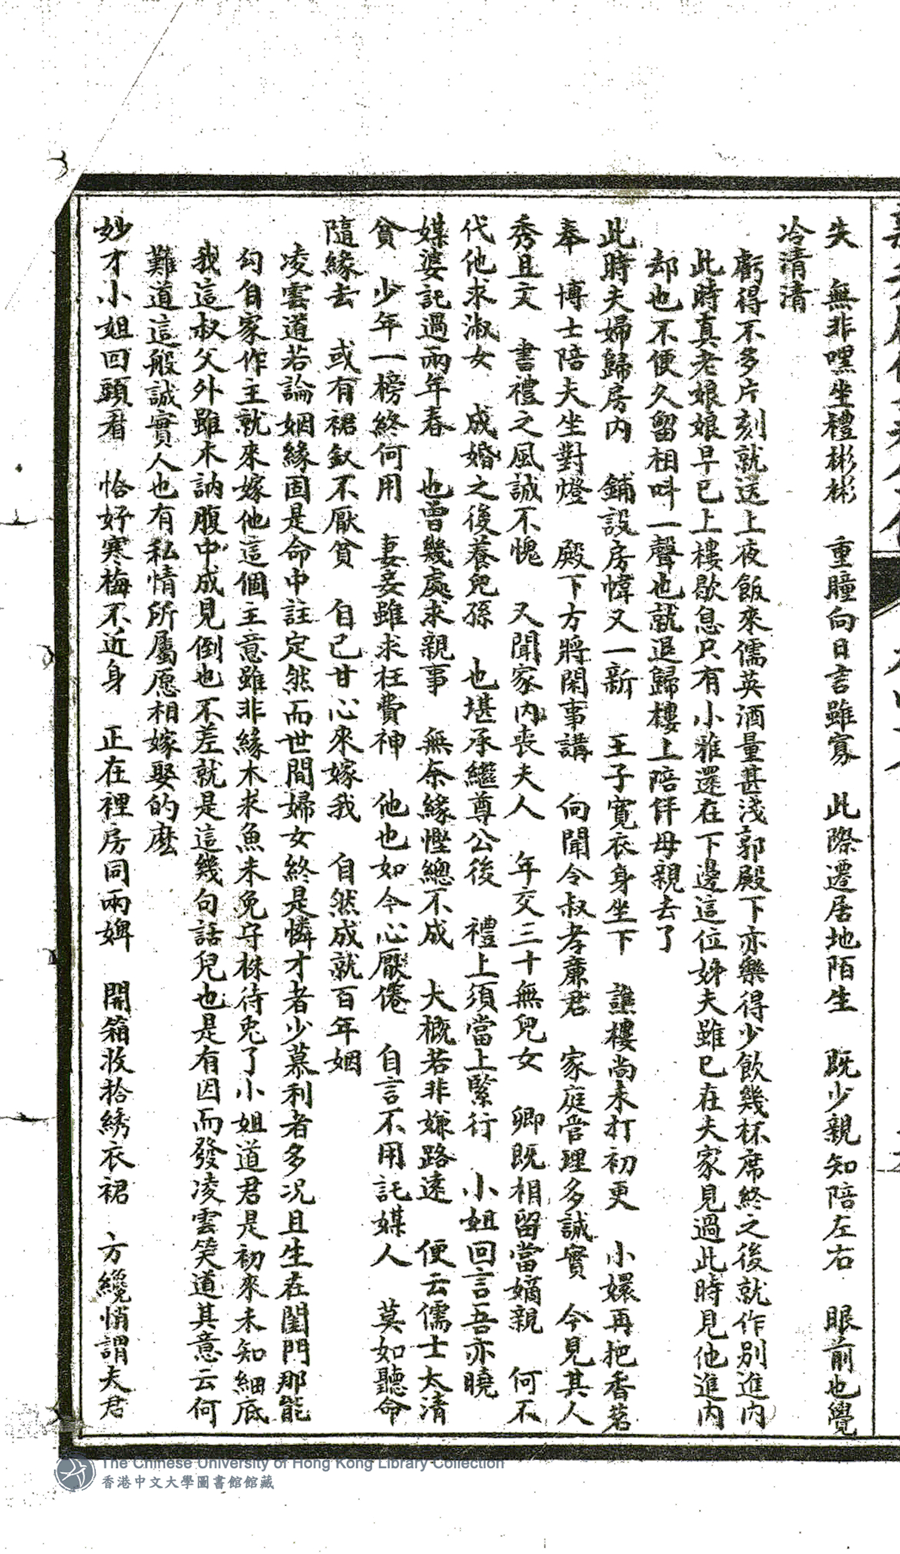 失　無非嘿坐禮彬彬　重瞳向日言雖寡　此際遷居地陌生　既少親知陪左右　眼前也覺
冷清清
虧得不多片刻就送上夜飯來儒英酒量甚淺郭殿下亦樂得少飲幾杯席終之後就作別進內
此時真老娘娘早已上樓歇息只有小雅還在下邊這位姊夫雖已在夫家見過此時見他進內
却也不便久留相叫一聲也就退歸樓上陪伴母親去了
此時夫婦歸房內　鋪設房幃又一新　王子寬衣身坐下　譙樓尚未打初更　小嬛再把香茗
奉　博士陪夫坐對燈　殿下方將閑事講　向聞令叔孝廉君　家庭管理多誠實　今見其人
秀且文　書禮之風誠不愧　又聞家內喪夫人　年交三十無兒女　卿既相留當嫡親　何不
代他求淑女　成婚之後養兒孫　也堪承繼尊公後　禮上須當上緊行　小姐回言吾亦曉
媒婆託過兩年春　也曾幾處求親事　無奈緣慳總不成　大概若非嫌路遠　便云儒士太清
貧　少年一榜終何用　妻妾雖求枉費神　他也如今心厭倦　自言不用託媒人　莫如聽命
隨緣去　或有裙釵不厭貧　自己甘心來嫁我　自然成就百年姻
凌雲道若論姻緣固是命中註定然而世間婦女終是憐才者少慕利者多况且生在閨門那能
勾自家作主就來嫁他這個主意雖非緣木求魚未免守株待兎了小姐道君是初來未知細底
我這叔父外雖木訥腹中成見倒也不差就是這幾句話兒也是有因而發凌雲笑道其意云何
難道這般誠實人也有私情所屬愿相嫁娶的麽
妙才小姐回頭看　恰好寒梅不近身　正在裡房同兩婢　開箱收拾綉衣裙　方纔悄謂夫君
The Chinese University of Hong Kong Library Collection
香港中文大學圖書館館藏